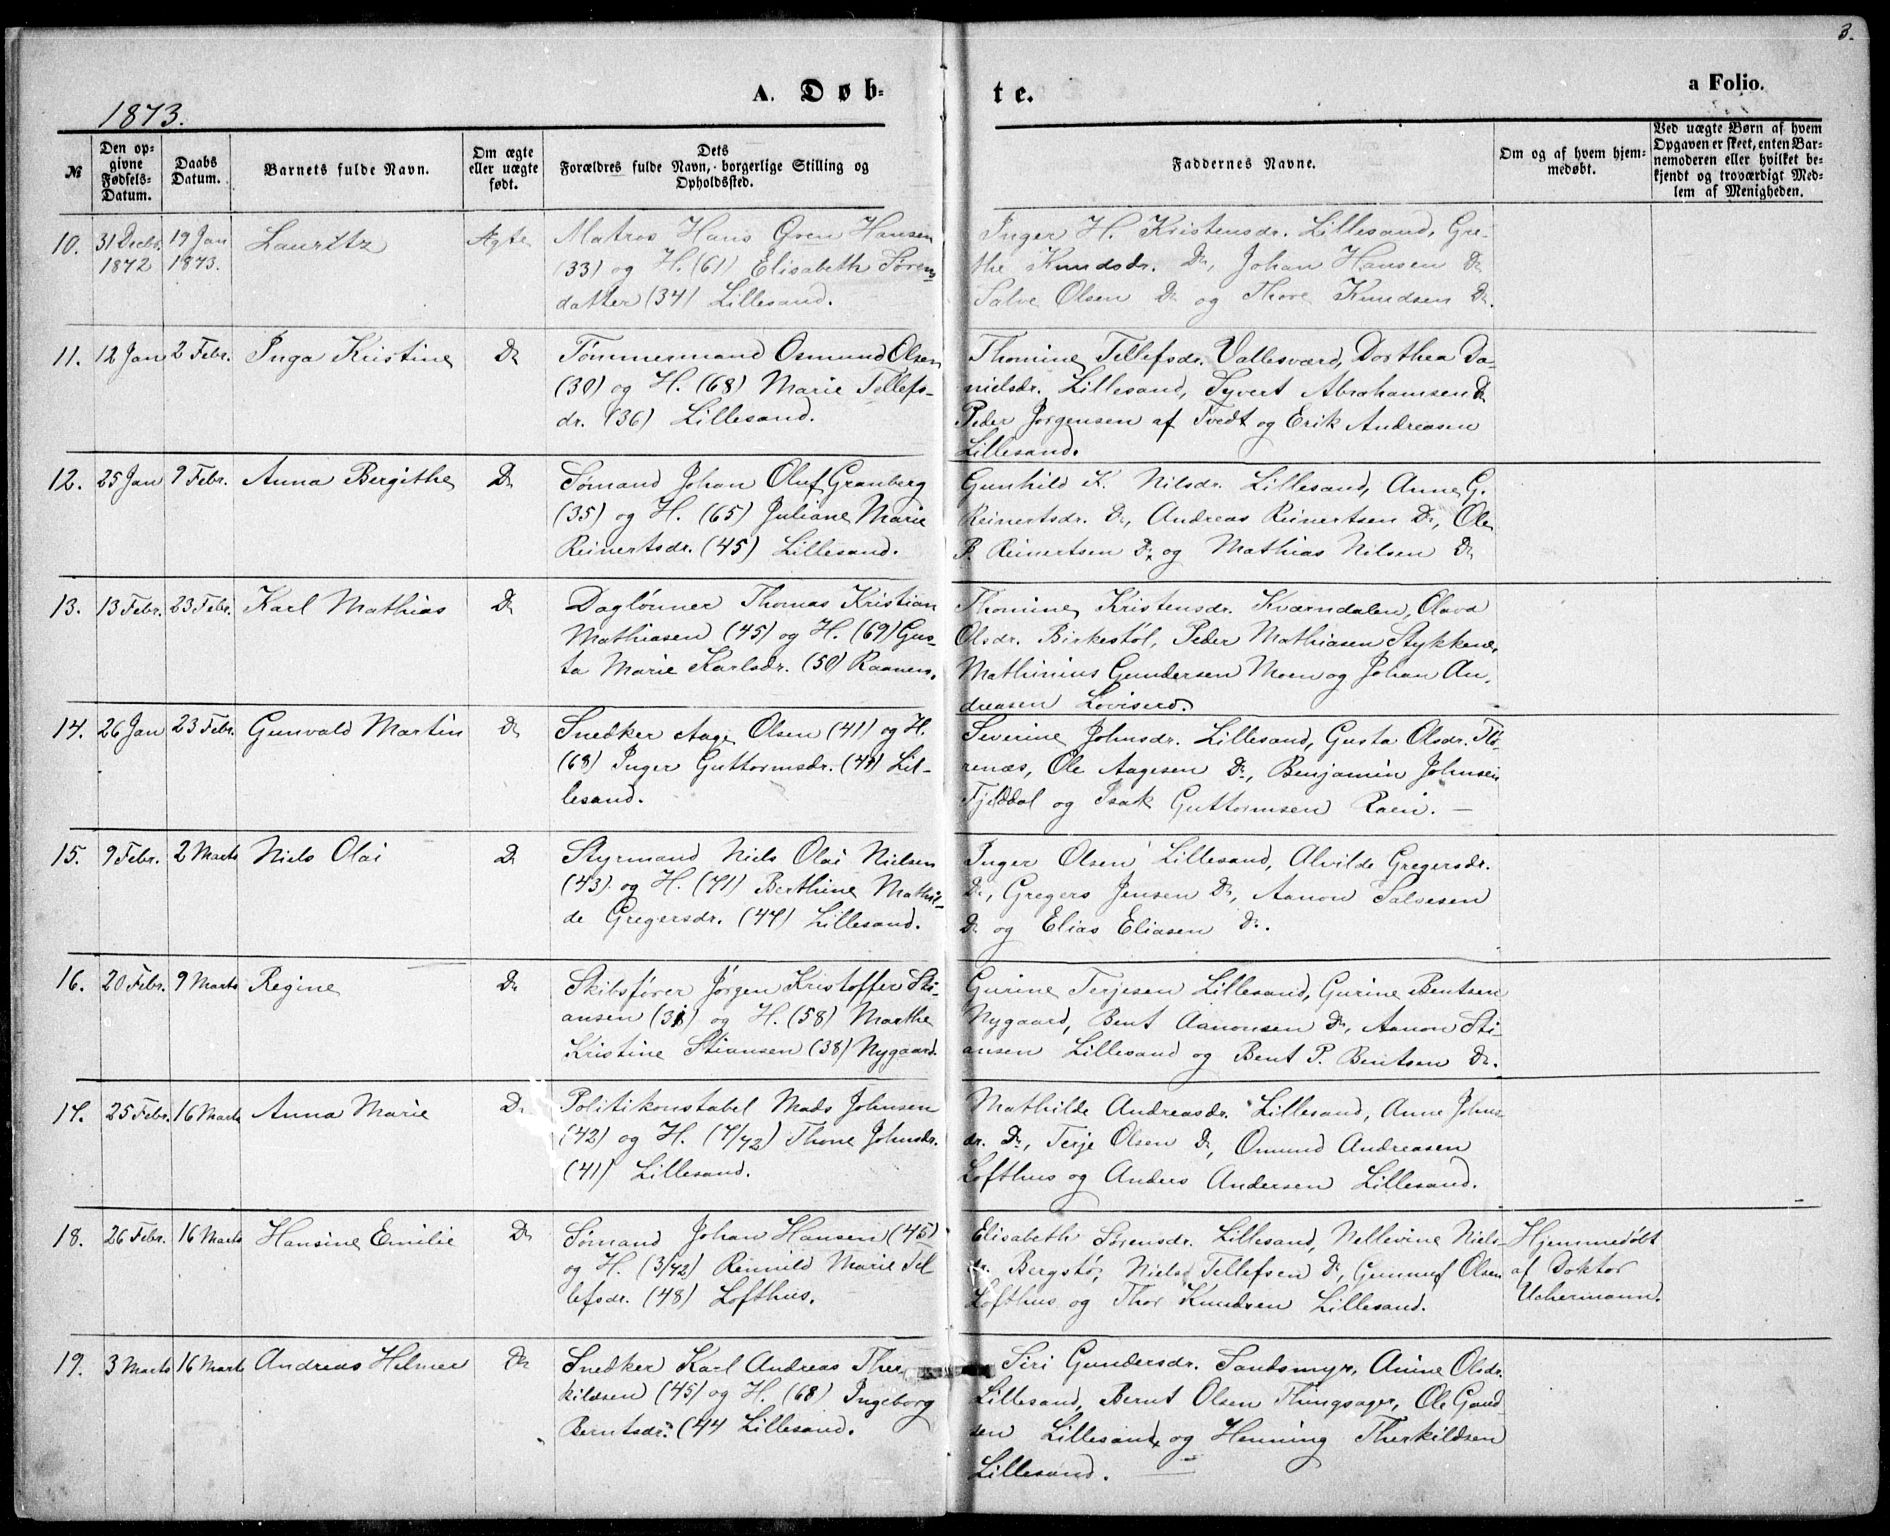 3.
A. Døb-
te.
a Folio.
1873.
№
Den op-
givne
Fødsels-
Datum.
Daabs
Datum.
Barnets fulde Navn.
Om ægte
eller uægte
født.
Dets
Forældres fulde Navn, borgerlige Stilling og
Opholdssted.
Faddernes Navne.
Om og af hvem hjem-
medøbt.
Ved uægte Børn af hvem
Opgaven er skeet, enten Bar-
nemoderen eller hvilket be-
kjendt og troværdigt Med-
lem af Menigheden.
10.
31 Decbr.
1872
19 Jan
1873.
Lauritz
Ægte
Matros Hans Hansen
(33) og H. (61) Elisabeth Sørens-
datter (34) Lillesand.
Inger H. Kristensdr. Lillesand, Gre-
the Knudsdr. Do, Johan Hansen Do
Salve Olsen Do og Thore Knudsen Do.
11.
12 Jan
2 Febr.
Inga Kristine
Do
Tømmermand Osmund Olsen
(30) og H. (68) Marie Tellefs-
dr. (36) Lillesand.
Thomine Tellefsdr. Vallesværd, Dorthea Da-
nielsdr. Lillesand, Syvert Abrahamsen Do
Peder Jørgensen af Tvedt og Erik Andreasen
Lillesand.
12.
25 Jan
9 Febr.
Anna Bergithe
Do
Sømand Johan Oluf Granberg
(35) og H. (65) Juliane Marie
Reinertsdr. (45) Lillesand.
Gunhild K. Nilsdr. Lillesand, Anne G.
Reinertsdr. Do, Andreas Reinertsen Do, Ole
P. Reinertsen Do og Mathias Nilsen Do
13.
13 Febr.
23 Febr.
Karl Mathias
Do
Daglønner Thomas Kristian
Mathiasen (45) og H. (69) Gus-
ta Marie Karlsdr. (50) Raanen.
Thomine Kristensdr. Kværndalen, Olava
Olsdr. Birkestøl, Peder Mathiasen Stykkene,
Mathinius Gundersen Moen og Johan An-
dreasen Loviserd.
14.
26 Jan
23 Febr.
Gunvald Martin
Do
Snedker Aage Olsen (41) og H.
(68) Inger Guttormsdr. (47) Lil-
lesand.
Severine Johnsdr. Lillesand, Gusta Olsdr. Tho-
renæs, Ole Aagesen Do, Benjamin Johnsen
Tjelddal og Isak Guttormsen Roen.
15.
9 Febr.
2 Marts
Niels Olai
Do
Styrmand Niels Olai Nielsen
(43) og H. (71) Berthine Mathil-
de Gregersdr. (47) Lillesand.
Inger Olsen Lillesand, Alvilde Gregersdr.
Do, Gregers Jensen Do, Aanon Salvesen
Do og Elias Eliasen Do.
16.
20 Febr.
9 Marts
Regine
Do
Skibsfører Jørgen Kristoffer Sti-
ansen (31) og H. (58) Marthe
Kristine Stiansen (38) Nygaard.
Gurine Terjesen Lillesand, Gurine Bentsen
Nygaard, Bent Aanonsen Do, Aanon Sti-
ansen Lillesand og Bent P. Bentsen Do.
17.
25 Febr.
16 Marts
Anna Marie
Do
Politikonstabel Mads Johnsen
(42) og H. (7/72) Thone Johnsdr.
(41) Lillesand.
Mathilde Andreasdr. Lillesand, Anne Johns-
dr. Do, Terje Olsen Do, Omund Andreasen
Lofthus og Anders Andersen Lillesand.
18.
26 Febr.
16 Marts
Hansine Emilie
Do
Sømand Johan Hansen (45)
og H. (3/72) Reinild Marie Tel
lefsdr. (48) Lofthus.
Elisabeth Sørensdr. Lillesand, Nellevine Niels-
dr. Bergstø, Niels Tellefsen Do, Gunnuf Olsen
Lofthus og Thor Knudsen Lillesand.
Hjemmedøbt
af Doktor
Uchermann.
19.
3 Marts
16 Marts
Andreas Helmer
Do
Snedker Karl Andreas Ther-
kildsen (45) og H. (68) Ingeborg
Berntsdr. (44 Lillesand.
Siri Gundersdr. Sandsmyr, Anine Olsdr.
Lillesand, Bernt Olsen Thingsager, Ole Gund-
sen Lillesand og Henning Therkildsen
Lillesand.